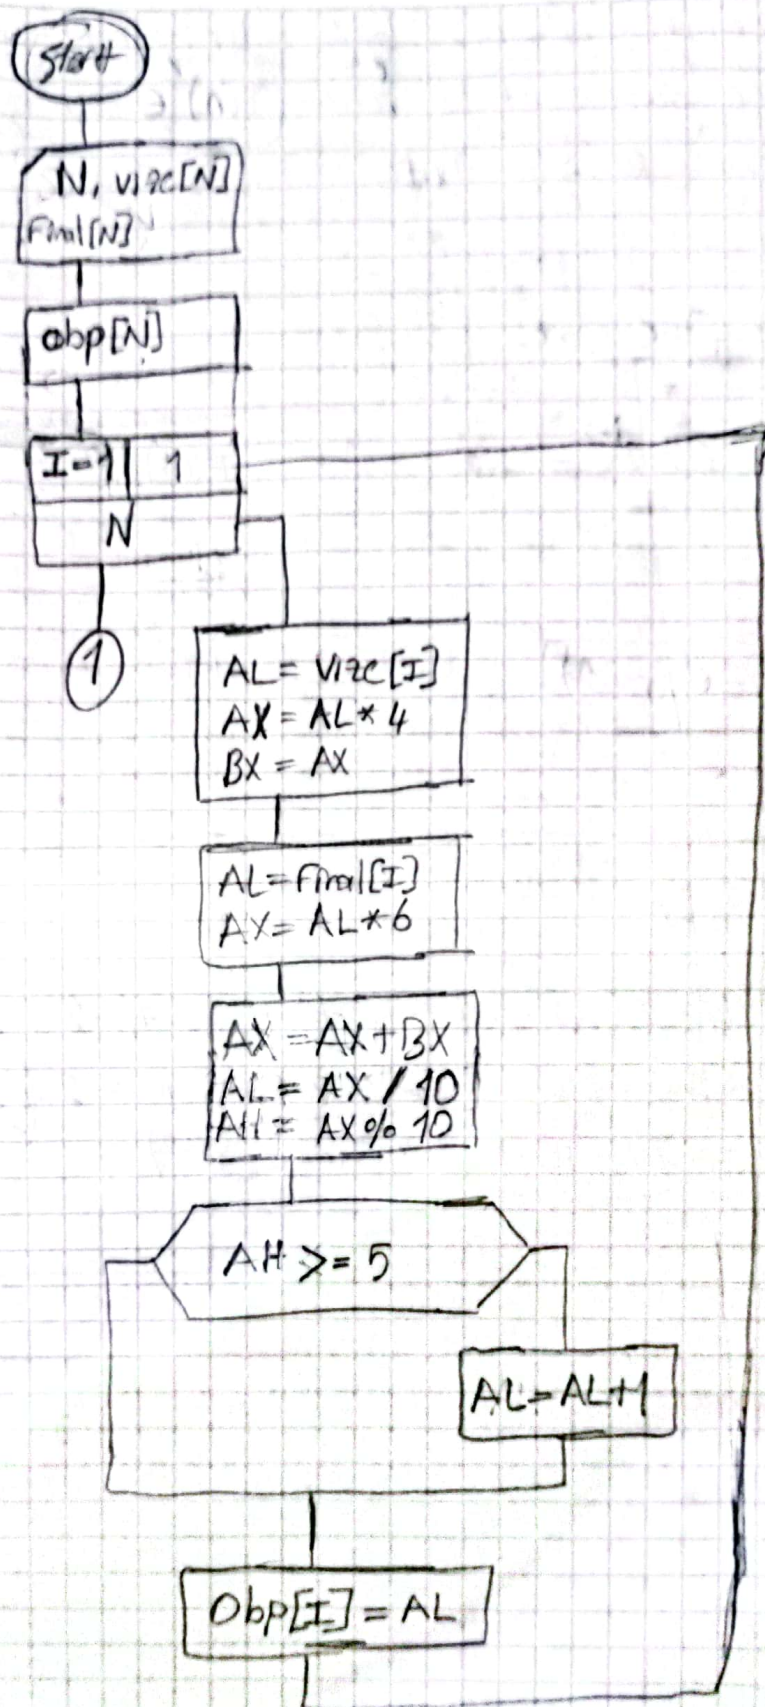 Start
N, vize[N]
Final[N]
obp[N]
I=1 1
N
1
AL= vize[I]
AX= AL*4
BX= AX
AL=Final[I]
AX= AL*6
AX=AX+BX
AL= AX / 10
AH= AX% 10
AH >= 5
AL=AL+1
Obp[I]=AL